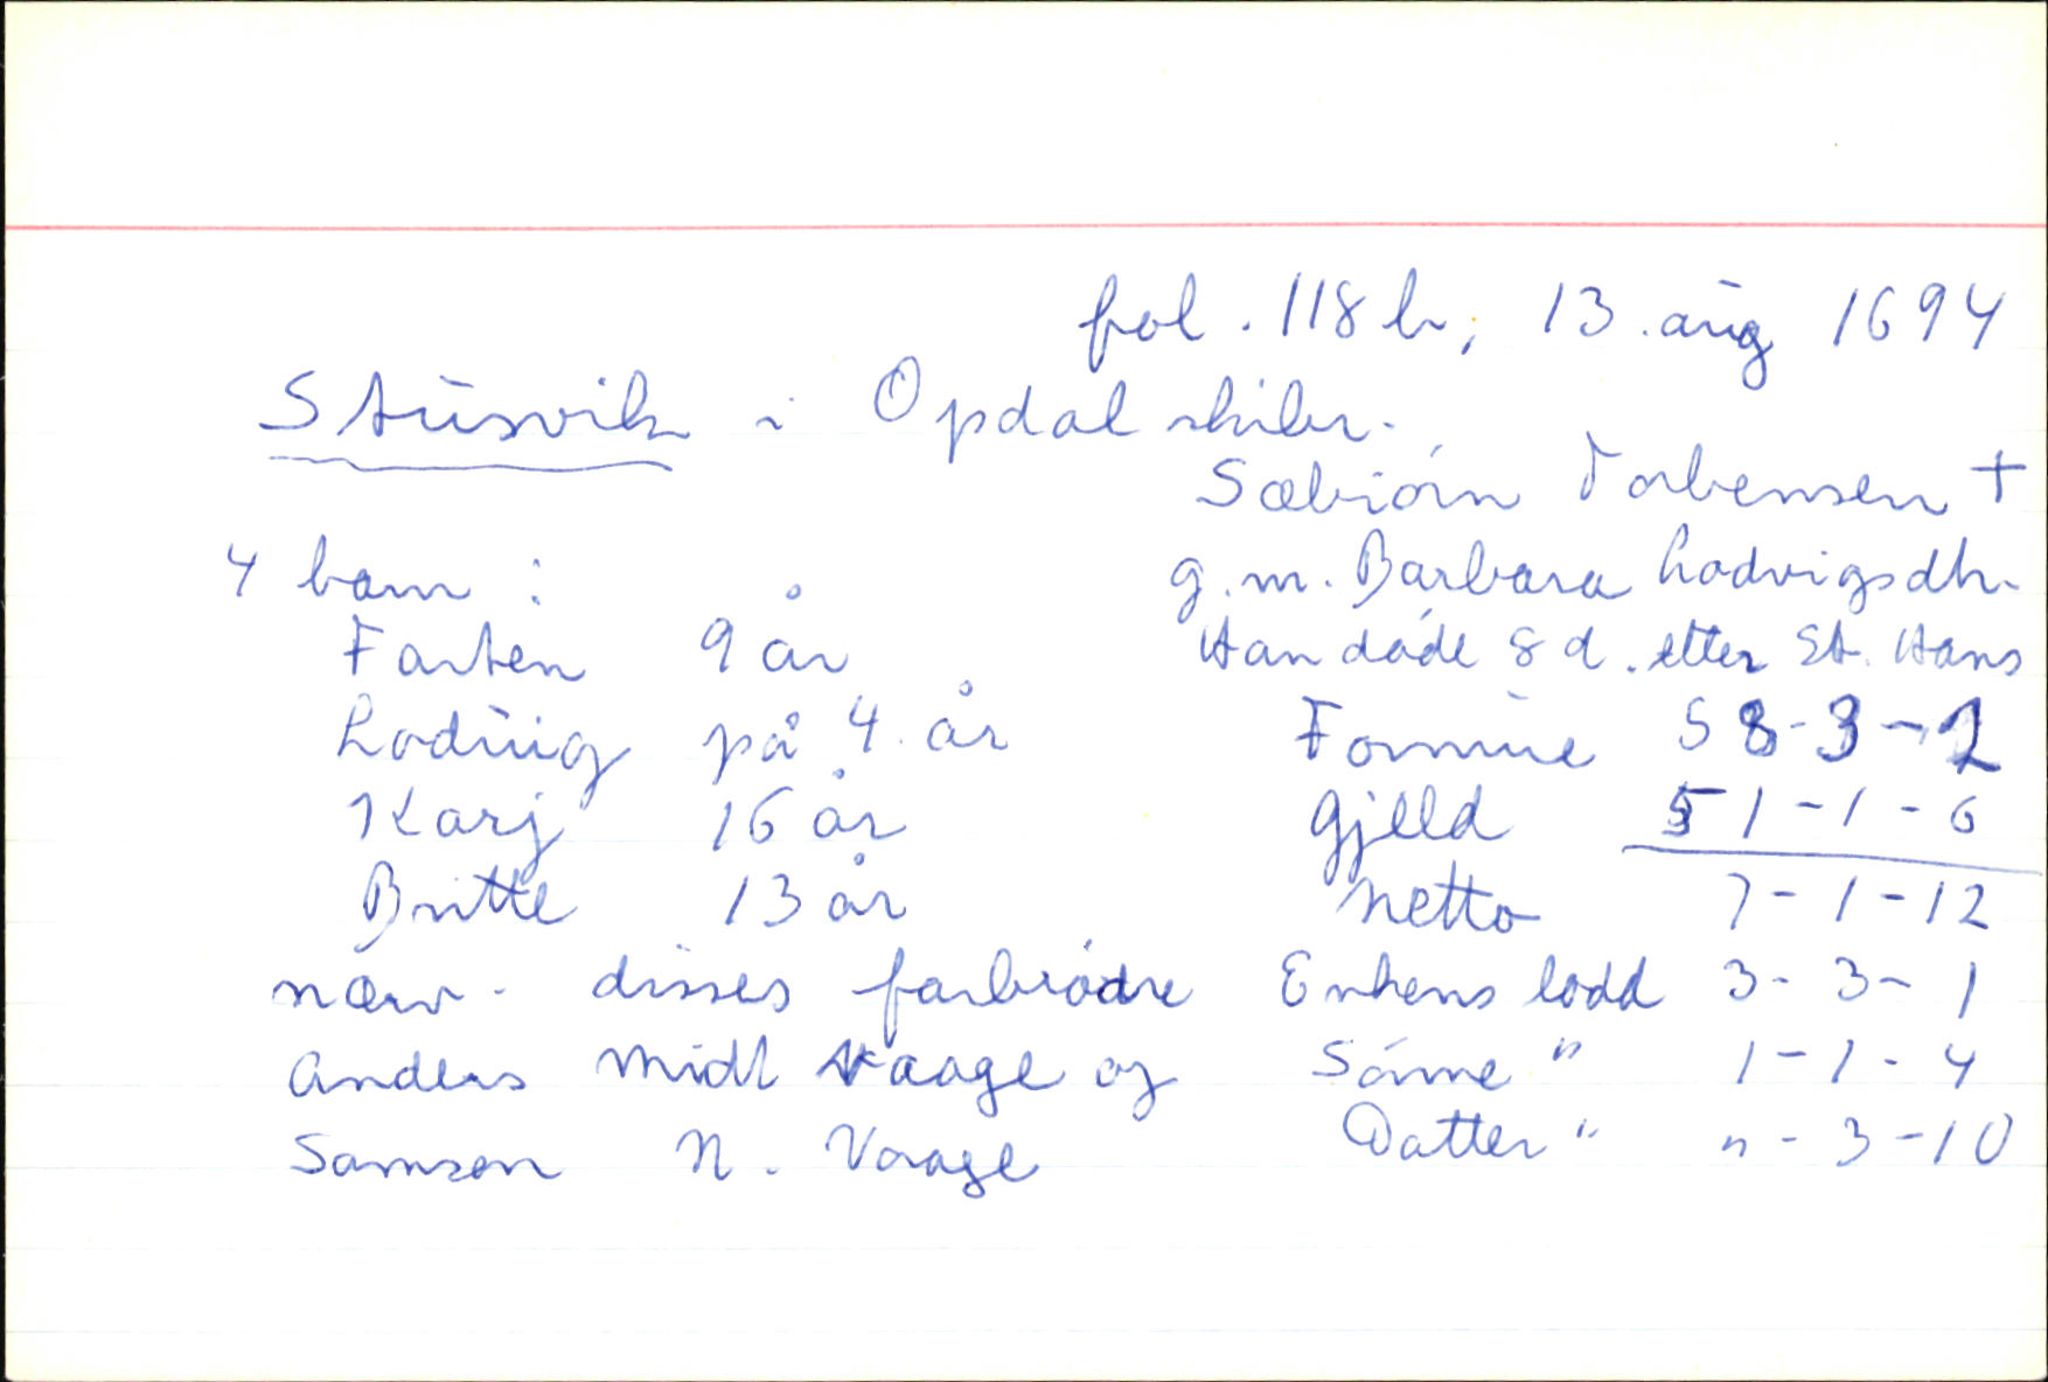 fol. 118 b, 13. aug 1694
Stusvik i Opdal skibr.
Sæbiórn Torbensen +
4 barn :
g.m. Barbara Lodvigsdtr.
Farten 9 år
Han døde 8 d. etter St. Hans
Lodvig på 4. år
Formue 58-3-2
Karj 16 år
Gjelld 51-1-6
Britte 13 år
Netto 7-1-12
nærv. disses farbrødre
Enkens lodd 3-3-1
Anders Midt Vaage og
Sønne " 1-1-4
Samson N. Vaage
Datter " " - 3-10